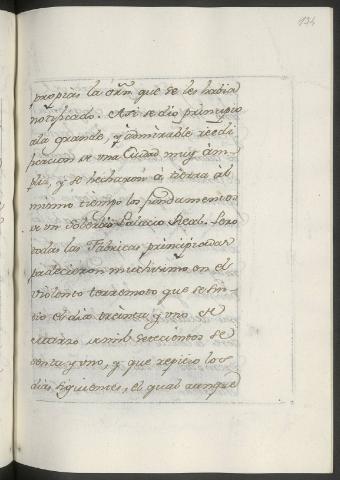 134
propias la orñ. que se les havia
notificado. Asi se dio principio
ala grande, y admirable reedi
ficacion de una Ciudad muy àm
plia, y se hecharon à tierra àl
mismo tiempo los fundamentos
de un Soberbio Palacio Real. Pero
todas las Fabricas principiadas
padecieron muchisimo en el
violento terremoto que se sin
tio el dia treinta y uno de
Marzo de mil setecientos se
senta y uno, y que repitio los
dias siguientes, el qual aunque